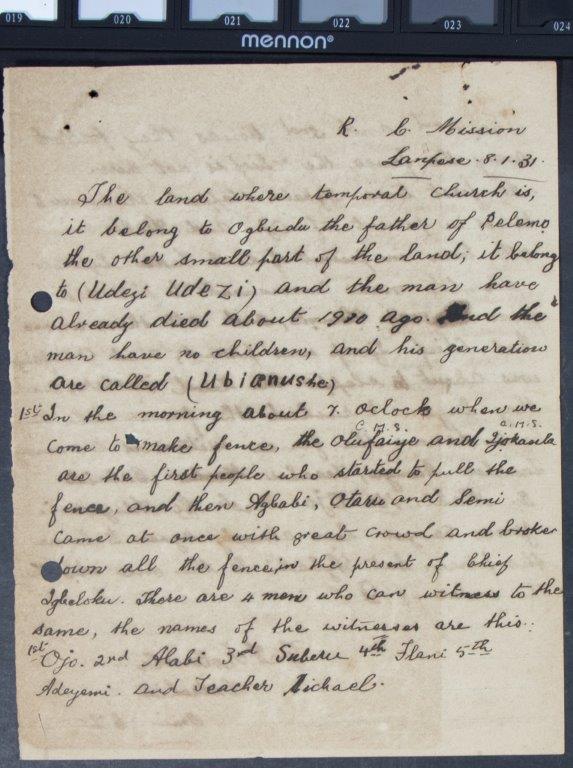 019 020 021 022 023 024
mennon®
R. C. Mission
Lampese. 8.1.31.
The land where temporal church is,
it belong to Ogbudu the father of Pelemo
the other small part of the land; it belong
to (Udezi Udezi) and the man have
already died about 1920 ago. And the
man have no children, and his generation
are called (Ubianushe)
1st In the morning about 7. oclock when we
C.M.S. C.M.S.
come to make fence, the Olufaiye and Ijokanla
are the first people who started to pull the
fence, and then Agbabi, Otaru and Semi
came at once with great crowd and broke
down all the fence, in the present of Chief
Igbeloku. There are 4 men who can witness to the
same, the names of the witnesses are this:
1st Ojo. 2nd Alabi 3rd Suberu 4th Ilani 5th
Adeyemi. and Teacher Michael.